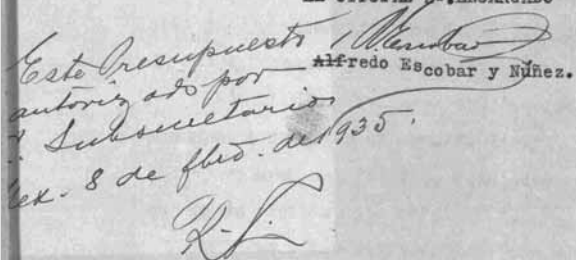 Este Presupuesto
Alfredo Escobar y Nuñez.
autorizado por
Subsecretario
8 de fbro. de 1935.